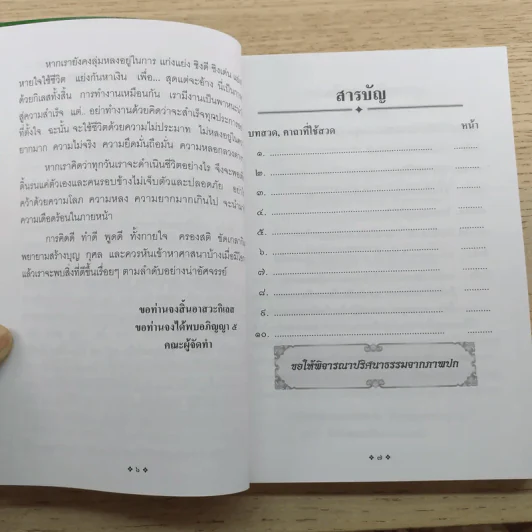 หากเรายังคงลุ่มหลงอยู่ในการ แก่งแย่ง ชิงดี ชิงเด่น
หายใจใช้ชีวิต แย่งกันหาเงิน เพื่อ... สุดแต่จะอ้าง นี่เป็นการ
ด้วยกิเลสทั้งสิ้น การทำงานเหมือนกัน เรามีงานเป็นพาหนะ
สู่ความสำเร็จ แต่.. อย่าทำงานด้วยคิดว่าจะสำเร็จทุกประการ
ที่ตั้งใจ ฉะนั้น จะใช้ชีวิตด้วยความไม่ประมาท ไม่หลงอยู่ใน
ยากมาก ความไม่จริง ความยึดมั่นถือมั่น ความหลอกลวง
หากเราคิดว่าทุกวันเราจะดำเนินชีวิตอย่างไร จึงจะ
ดิ้นรนแต่ตัวเองและคนรอบข้างไม่เจ็บตัวและปลอดภัย
คว้าด้วยความโลภ ความหลง ความยากมากเกินไป จะนำ
ความเดือดร้อนในภายหน้า
การคิดดี ทำดี พูดดี ทั้งกายใจ ครองสติ ขัดเกลา
พยายามสร้างบุญ กุศล และควรหันเข้าหาศาสนาบ้างเมื่อมี
แล้วเราจะพบสิ่งที่ดีขึ้นเรื่อยๆ ตามลำดับอย่างน่าอัศจรรย์
ขอท่านจงสิ้นอาสวะกิเลส
ขอท่านจงได้พบอภิญญา ๕
คณะผู้จัดทำ
๖
สารบัญ
บทสวด, คาถาที่ใช้สวด หน้า
๑. ........................................ ............
๒. ........................................ ............
๓. ........................................ ............
๔. ........................................ ............
๕. ........................................ ............
๖. ........................................ ............
๗. ........................................ ............
๘. ........................................ ............
๙. ........................................ ............
๑๐. ........................................ ............
ขอให้พิจารณาปริศนาธรรมจากภาพปก
๗